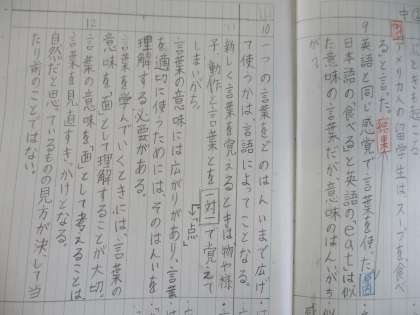 中①
アメリカ人の留学生はスープを食べ
ると言った。結果
9 英語と同じ感覚で言葉を使た
日本語の「食べる」と英語の「eat」は似
た意味の言葉だが、意味のはんいがち
がう。
10 一つの言葉をどのはんいまで広げ
て使うかは、言語によってことなる。
11 新しく言葉を覚えるときは、物や様
子、動作と言葉とを「一対一」で覚えて
しまいがち。「点」
言葉の意味には広がりがあり、言葉
を適切に使うためには、そのはんいを
理解する必要がある。
12 言葉を学んでいくときには、言葉の
意味を「面」として理解することが大切。
言葉の意味を「面」として考えることは、
言葉を見直すきっかけとなる。
自然だと思っているものの見方が、決して当
たり前のことではない。